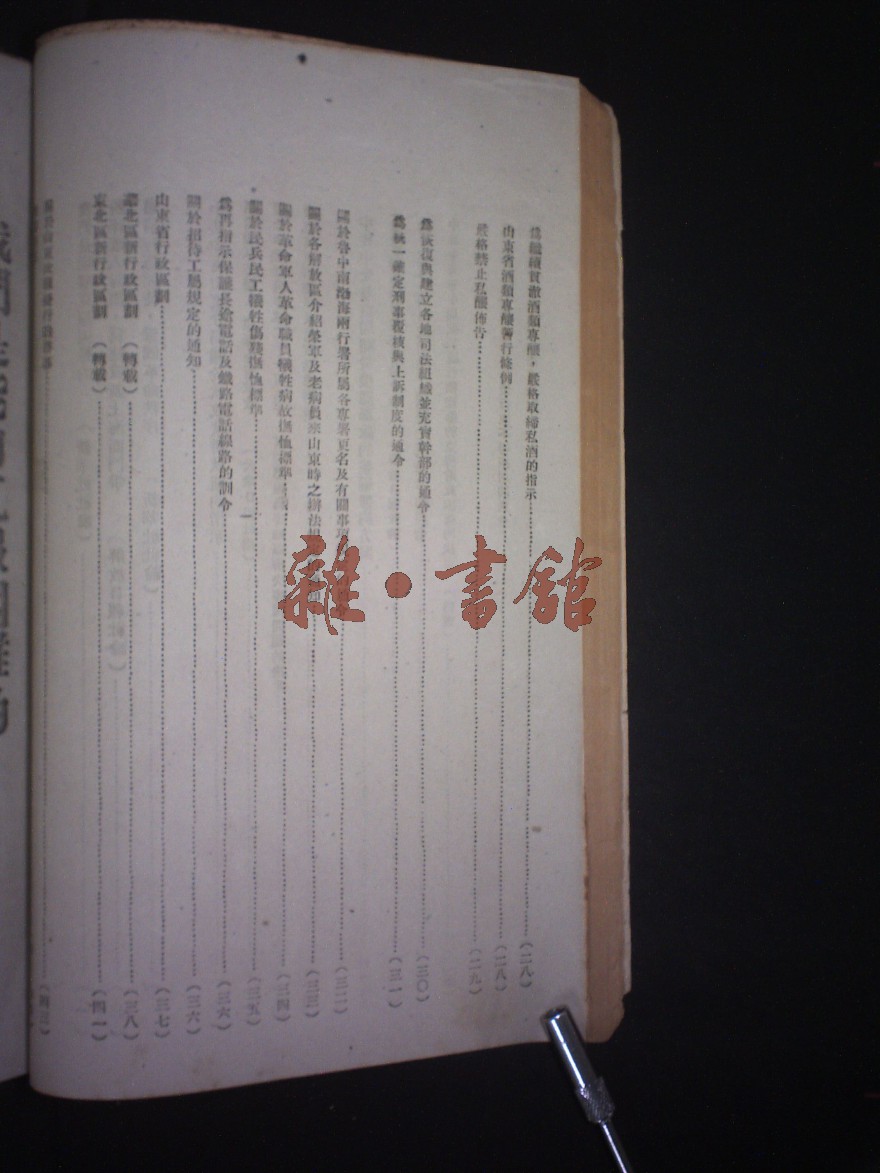 為繼續貫澈酒類專釀，嚴格取締私酒的指示……（二八）
山東省酒類專釀暫行條例……（二八）
嚴格禁止私釀佈告……（二九）
為恢復與建立各地司法組織並充實幹部的通令……（三〇）
為統一確定刑事覆核與上訴制度的通令……（三一）
關於魯中南渤海兩行署所屬各專署更名及有關事項……（三二）
關於各解放區介紹榮軍及老病員來山東時之辦法……（三三）
關於革命軍人革命職員犧牲病故撫恤標準……（三四）
關於民兵民工犧牲傷殘撫恤標準……（三五）
為再指示保護長途電話及鐵路電話線路的訓令……（三六）
關於招待工屬規定的通知……（三六）
山東省行政區劃……（三七）
北區新行政區劃（轉載）……（三八）
東北區新行政區劃（轉載）……（四一）
雜·書館